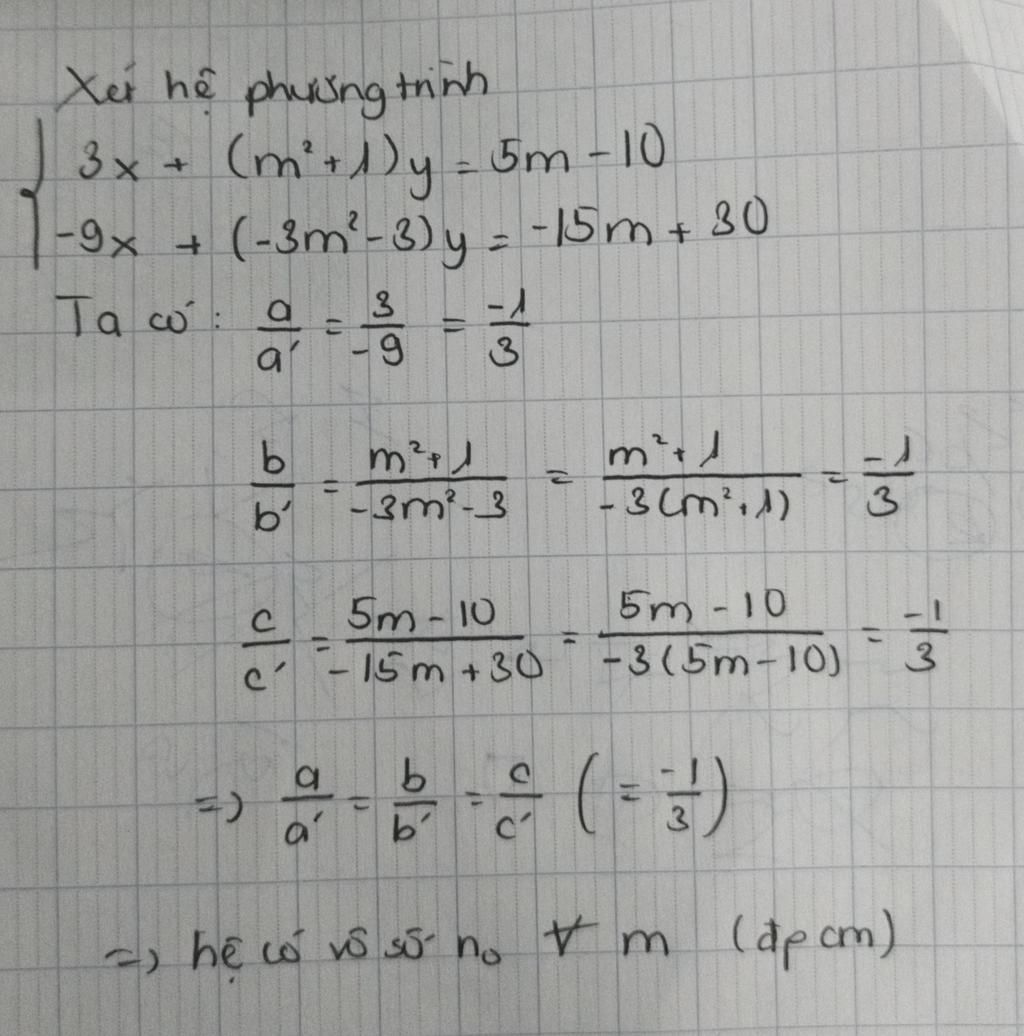 Xét hệ phương trình
3x + (m² + 1)y = 5m - 10
-9x + (-3m² - 3)y = -15m + 30
Ta có: a/a' = 3/-9 = -1/3
b/b' = m²+1/-3m²-3 = m²+1/-3(m²+1) = -1/3
c/c' = 5m-10/-15m+30 = 5m-10/-3(5m-10) = -1/3
=> a/a' = b/b' = c/c' (= -1/3)
=> hệ có vô số n₀ ∀ m (đpcm)